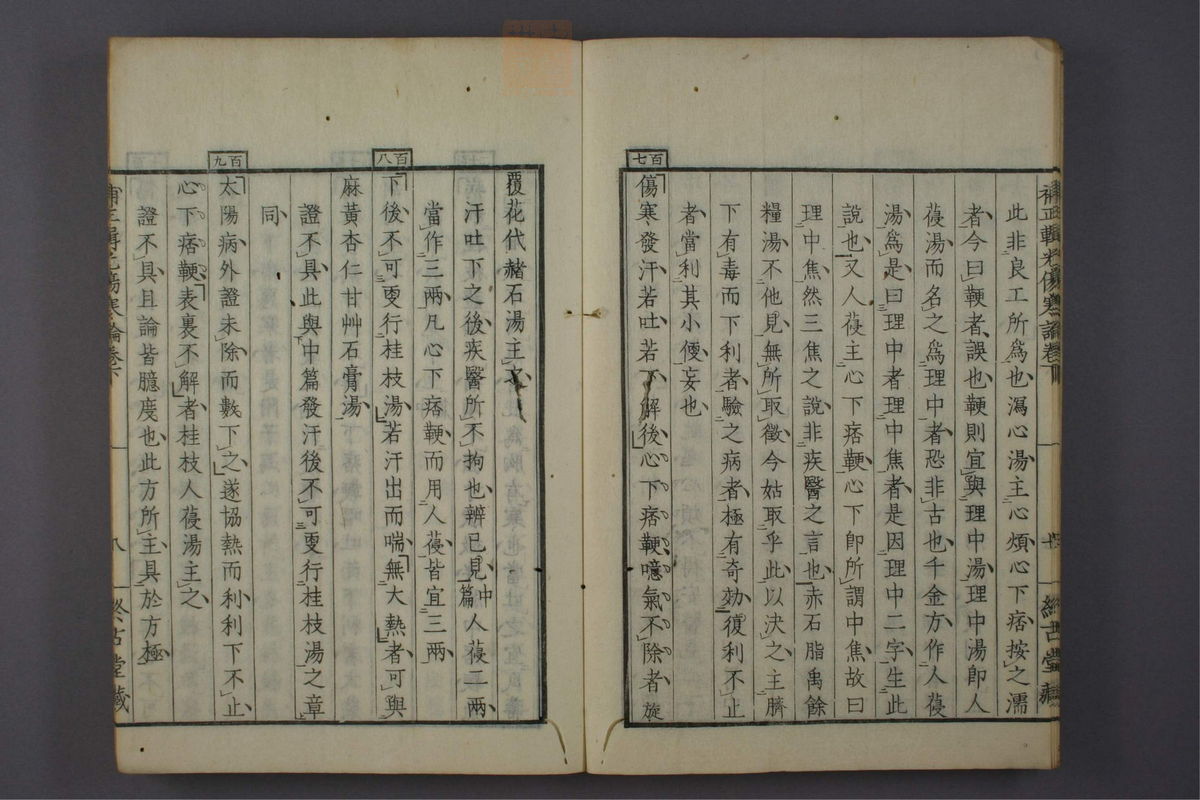 補正輯光傷寒論卷下
七
終古堂藏
此非良工所爲也瀉心湯主心煩心下痞按之濡
者今曰鞕者誤也鞕則宜與理中湯理中湯即人
葠湯而名之爲理中者恐非古也千金方作人葠
湯爲是曰理中者理中焦者是因理中二字生此
說也又人葠主心下痞鞕心下即所謂中焦故曰
理中焦然三焦之說非疾醫之言也赤石脂禹餘
糧湯不他見無所取徵今姑取乎此以決之主臍
下有毒而下利者驗之病者極有奇効復利不止
者當利其小便妄也
百七
傷寒發汗若吐若下解後心下痞鞕噫氣不除者旋
覆花代赭石湯主
汗吐下之後疾醫所不拘也辨已見中篇人葠二兩
當作三兩凡心下痞鞕而用人葠皆宜三兩
百八
下後不可更行桂枝湯若汗出而喘無大熱者可與
麻黃杏仁甘艸石膏湯
證不具此與中篇發汗後不可更行桂枝湯之章
同
百九
太陽病外證未除而數下之遂協熱而利利下不止
心下痞鞕表裏不解者桂枝人葠湯主之
證不具且論皆臆度也此方所主具於方極
補正輯光傷寒論卷下
八
終古堂藏